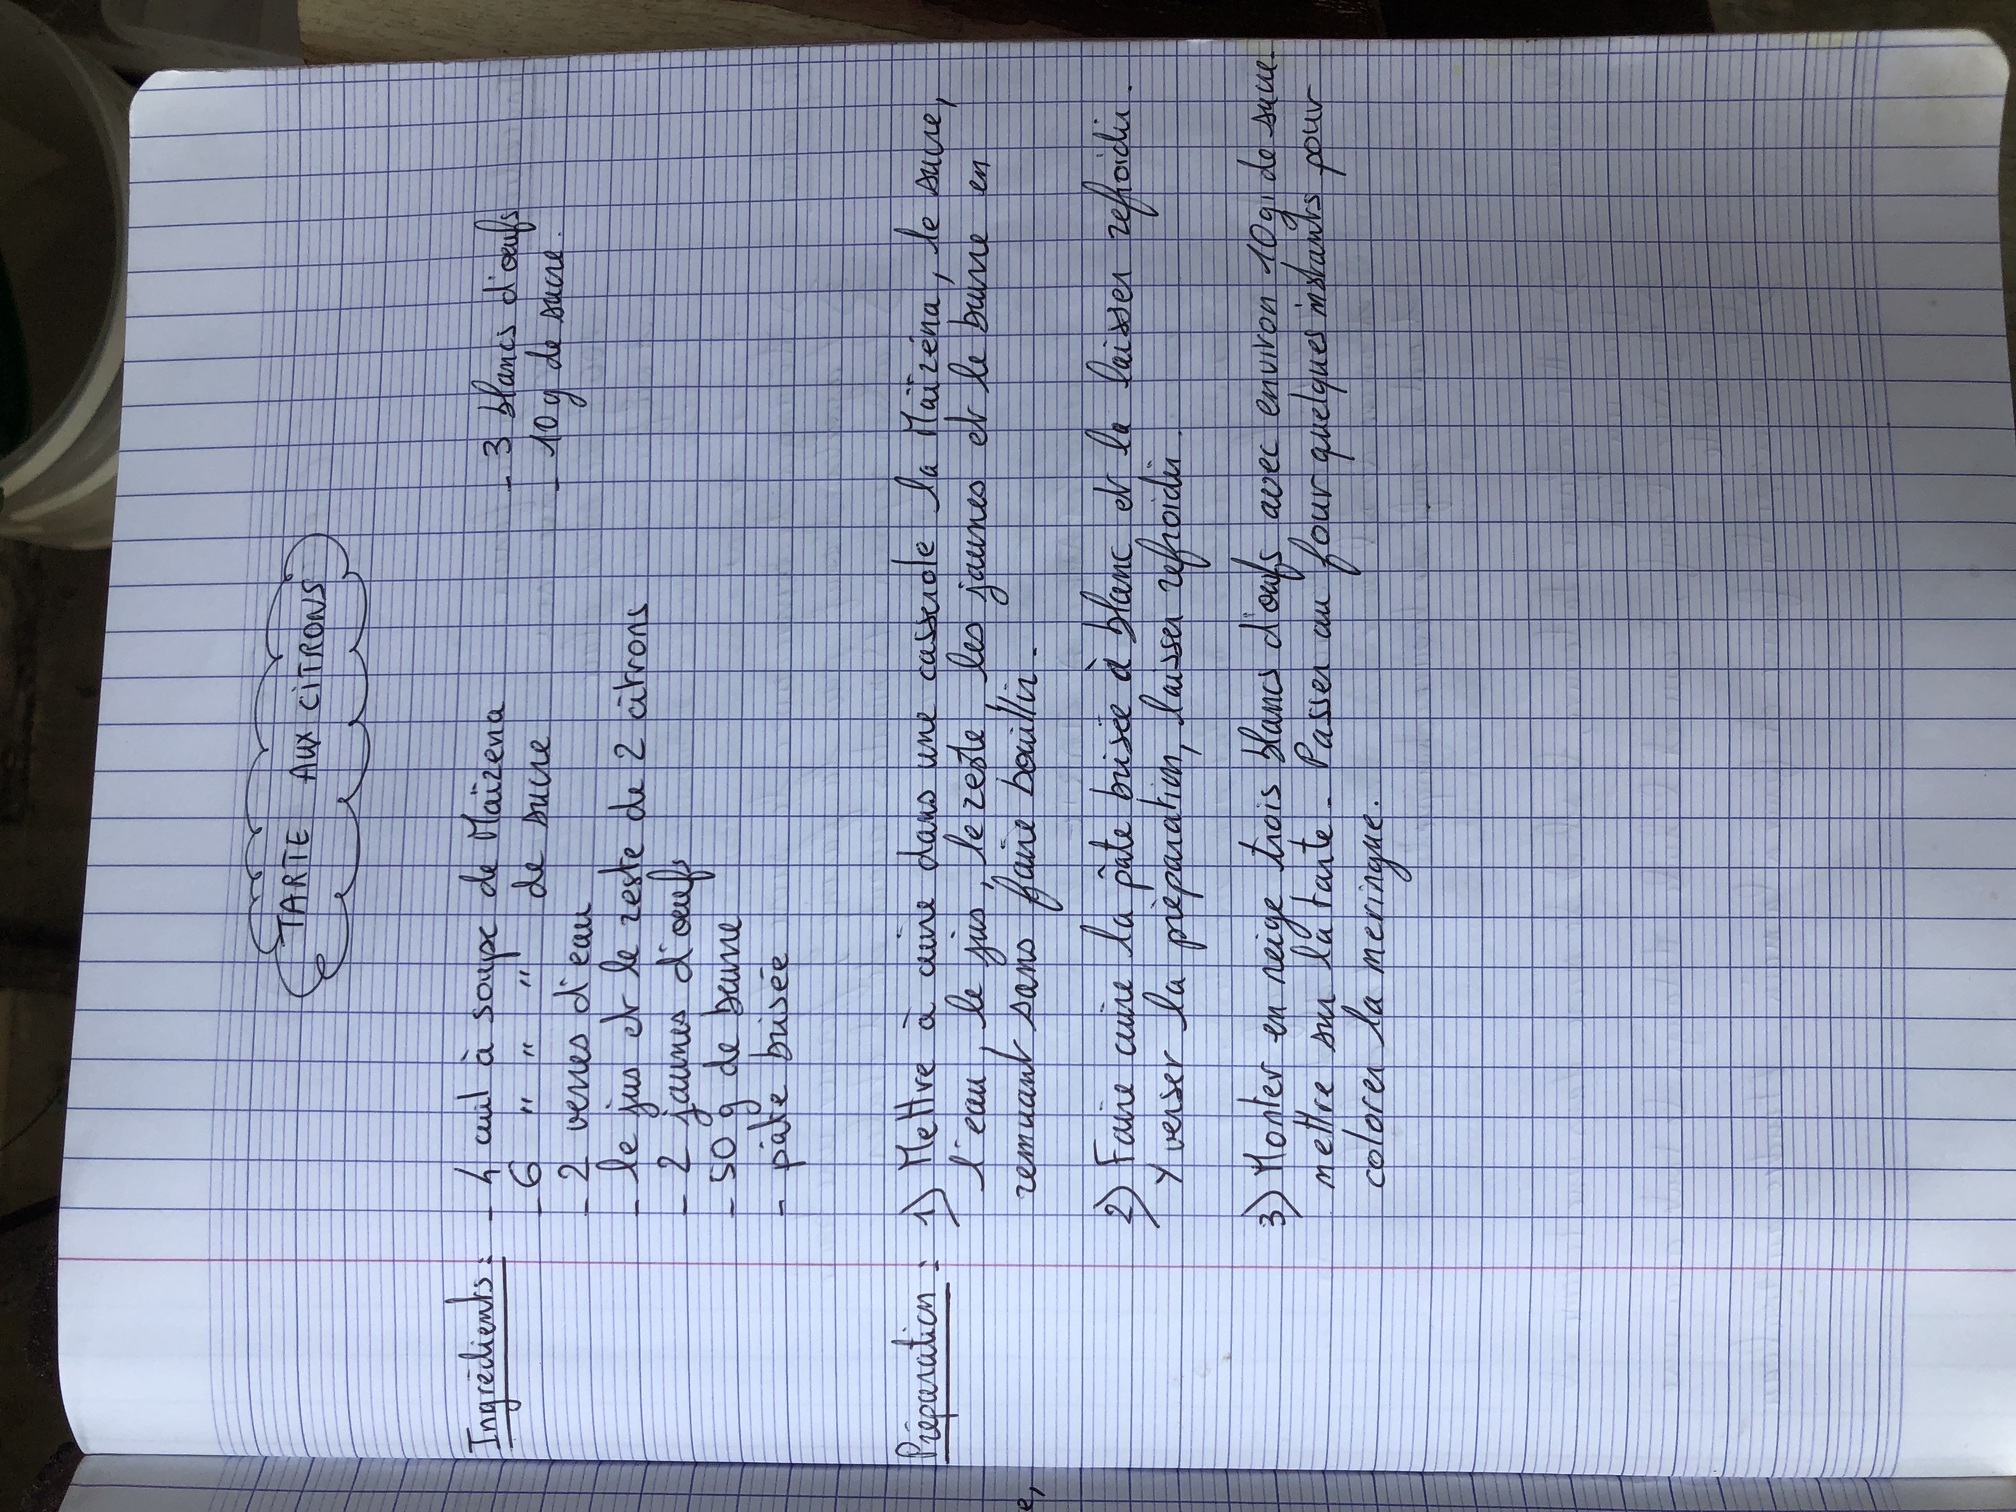 TARTE AUX CITRONS
Ingrédients : - 4 cuil à soupe de Maïzena
- 6 " " " de sucre
- 2 verres d'eau
- le jus et le zeste de 2 citrons
- 2 jaunes d'oeufs
- 50 g de beurre
- pâte brisée
- 3 blancs d'oeufs
- 10 g de sucre.
Préparation : 1) Mettre à cuire dans une casserole la Maïzéna, le sucre,
l'eau, le jus, le zeste, les jaunes et le beurre en
remuant sans faire bouillir.
2) Faire cuire la pâte brisée à blanc et la laisser refroidir.
Y verser la préparation, laisser refroidir.
3) Monter en neige trois blancs d'oeufs avec environ 10 g de sucre.
mettre sur la tarte. Passer au four quelques instants pour
colorer la meringue.
e,